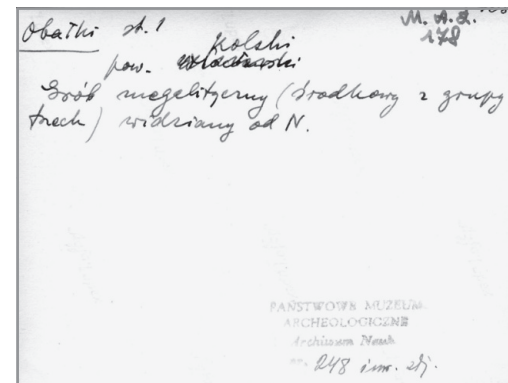 Obałki st. 1
M. A. Ł.
178
Kolski
pow.
Grób megalityczny (środkowy z grupy
trzech) widziany od N.
PAŃSTWOWE MUZEUM
ARCHEOLOGICZNE
Archiwum Nauk
248 inw. zdj.